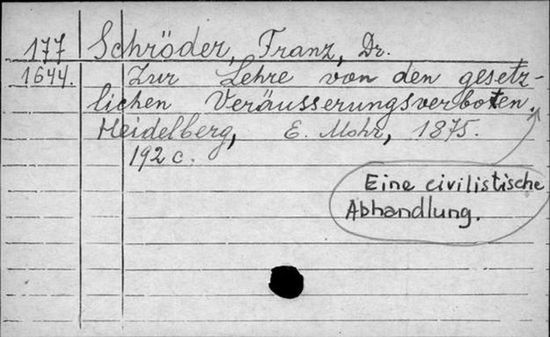 177 Schröder, Franz, Dr.
1644. Zur Lehre von den gesetz-
lichen Veräusserungsverboten.
Heidelberg, E. Mohr, 1875.
192 c.
Eine civilistische
Abhandlung.